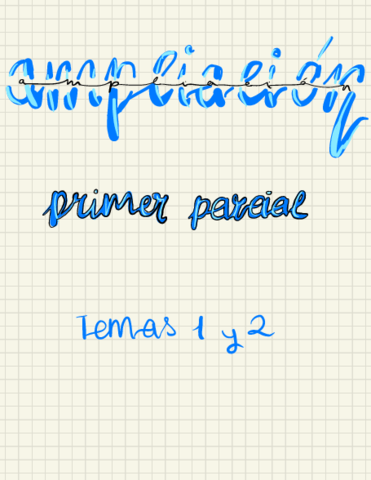 ampliación
ampliación
primer parcial
Temas 1 y 2